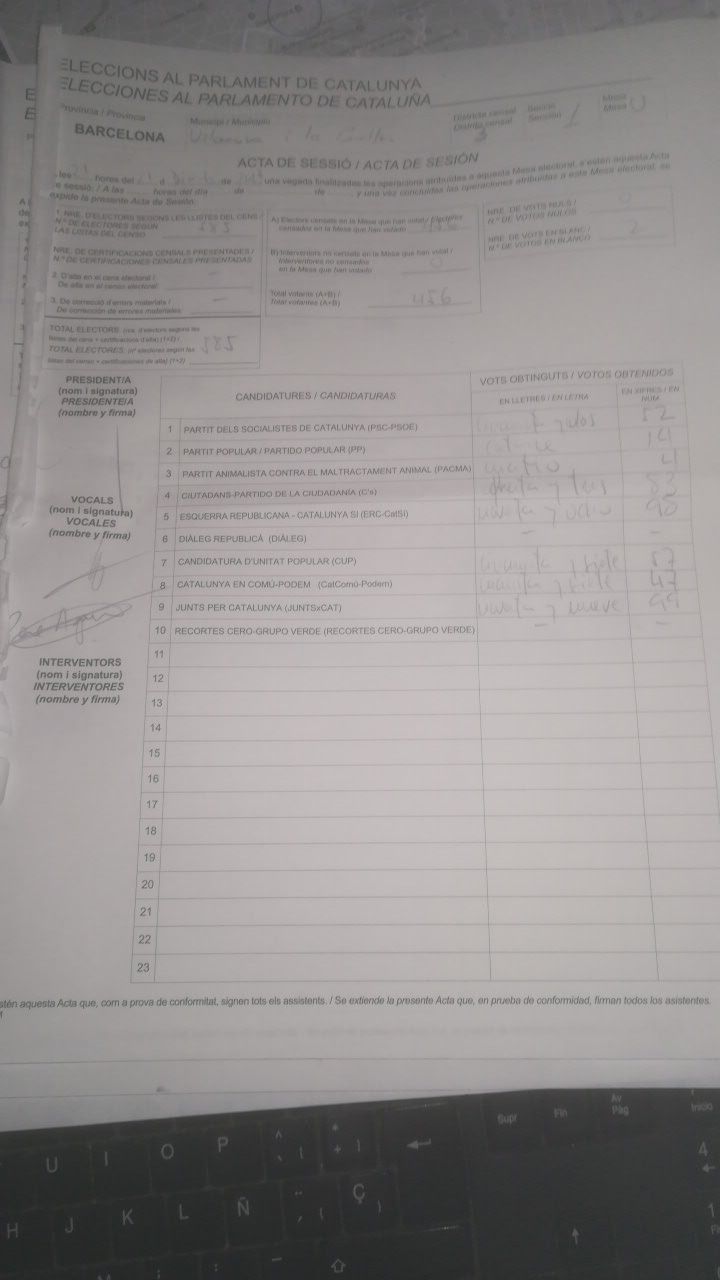 ELECCIONS AL PARLAMENT DE CATALUNYA
ELECCIONES AL PARLAMENTO DE CATALUÑA
Província / Provincia
BARCELONA
Municipi / Municipio
Vilanova i la
Districte censal
Distrito censal
3
Secció
Sección
1
Mesa
Mesa U
ACTA DE SESSIÓ / ACTA DE SESIÓN
hores del
una vegada finalitzades les operacions atribuïdes a aquesta Mesa electoral, s'estén aquesta Acta
de sessió. / A las horas del día de de , y una vez concluidas las operaciones atribuidas a esta Mesa electoral, se
expide la presente Acta de Sesión.
1. NRE. D'ELECTORS SEGONS LES LLISTES DEL CENS /
N.º DE ELECTORES SEGÚN
LAS LISTAS DEL CENSO
585
NRE. DE CERTIFICACIONS CENSALS PRESENTADES /
N.º DE CERTIFICACIONES CENSALES PRESENTADAS
2. D'alta en el cens electoral /
De alta en el censo electoral
3. De correcció d'errors materials /
De corrección de errores materiales
TOTAL ELECTORS
TOTAL ELECTORES
585
A) Electors censats en la Mesa que han votat / Electores
censados en la Mesa que han votado 456
B) Interventors no censats en la Mesa que han votat /
Interventores no censados
en la Mesa que han votado 0
Total votants (A+B) /
Total votantes (A+B) 456
NRE. DE VOTS NULS /
N.º DE VOTOS NULOS 0
NRE. DE VOTS EN BLANC /
N.º DE VOTOS EN BLANCO 2
PRESIDENT/A
(nom i signatura)
PRESIDENTE/A
(nombre y firma)
VOCALS
(nom i signatura)
VOCALES
(nombre y firma)
INTERVENTORS
(nom i signatura)
INTERVENTORES
(nombre y firma)
CANDIDATURES / CANDIDATURAS
VOTS OBTINGUTS / VOTOS OBTENIDOS
EN LLETRES / EN LETRA
EN XIFRES / EN NUM
1 PARTIT DELS SOCIALISTES DE CATALUNYA (PSC-PSOE) cincuenta y dos 52
2 PARTIT POPULAR / PARTIDO POPULAR (PP) catorce 14
3 PARTIT ANIMALISTA CONTRA EL MALTRACTAMENT ANIMAL (PACMA) cuatro 4
4 CIUTADANS-PARTIDO DE LA CIUDADANÍA (C's) ochenta y tres 83
5 ESQUERRA REPUBLICANA - CATALUNYA SÍ (ERC-CatSí) noventa y ocho 98
6 DIÀLEG REPUBLICÀ (DIÀLEG) - -
7 CANDIDATURA D'UNITAT POPULAR (CUP) cincuenta y siete 57
8 CATALUNYA EN COMÚ-PODEM (CatComú-Podem) cuarenta y siete 47
9 JUNTS PER CATALUNYA (JUNTSxCAT) noventa y nueve 99
10 RECORTES CERO-GRUPO VERDE (RECORTES CERO-GRUPO VERDE) - -
11
12
13
14
15
16
17
18
19
20
21
22
23
estén aquesta Acta que, com a prova de conformitat, signen tots els assistents. / Se extiende la presente Acta que, en prueba de conformidad, firman todos los asistentes.
Supr Fin Av Pág Inicio
U I O P
H J K L Ñ Ç
M